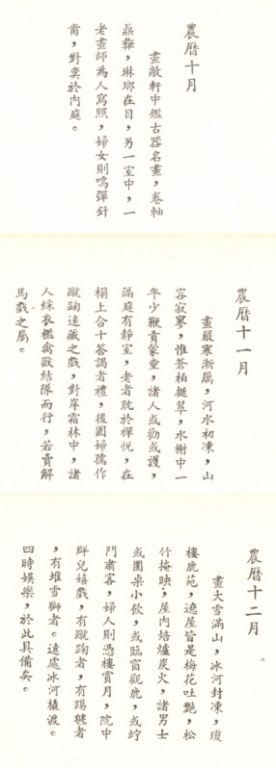 農曆十月
畫敞軒中鑑古器名畫，卷軸
鼎彝，琳瑯在目，另一室中，一
老畫師為人寫照，婦女則鳴彈針
黹，對奕於內庭。
農曆十一月
畫嚴寒漸屬，河水初凍，山
容寂寥，惟蒼柏挺翠，水榭中一
年少鞭責家童，諸人或勸或護，
隔庭有靜室，老者耽於禪悅，在
榻上合十答謁者禮，後園婦孺作
蹴踘達藏之戲，對岸霜林中，諸
人綵衣檻禽獸結隊而行，若賣解
馬戲之屬。
農曆十二月
畫大雪滿山，冰河封凍，瓊
樓鹿苑，遶屋皆是梅花吐艷，松
竹掩映，屋內焙爐炭火，諸男士
或圍桌小飲，或臨窗觀鹿，或竚
門肅客，婦人則憑樓賞月，院中
群兒嬉戲，有蹴踘者，有踢毽者
，有堆雪獅者。遠處冰河橇渡。
四時娛樂，於此具備矣。